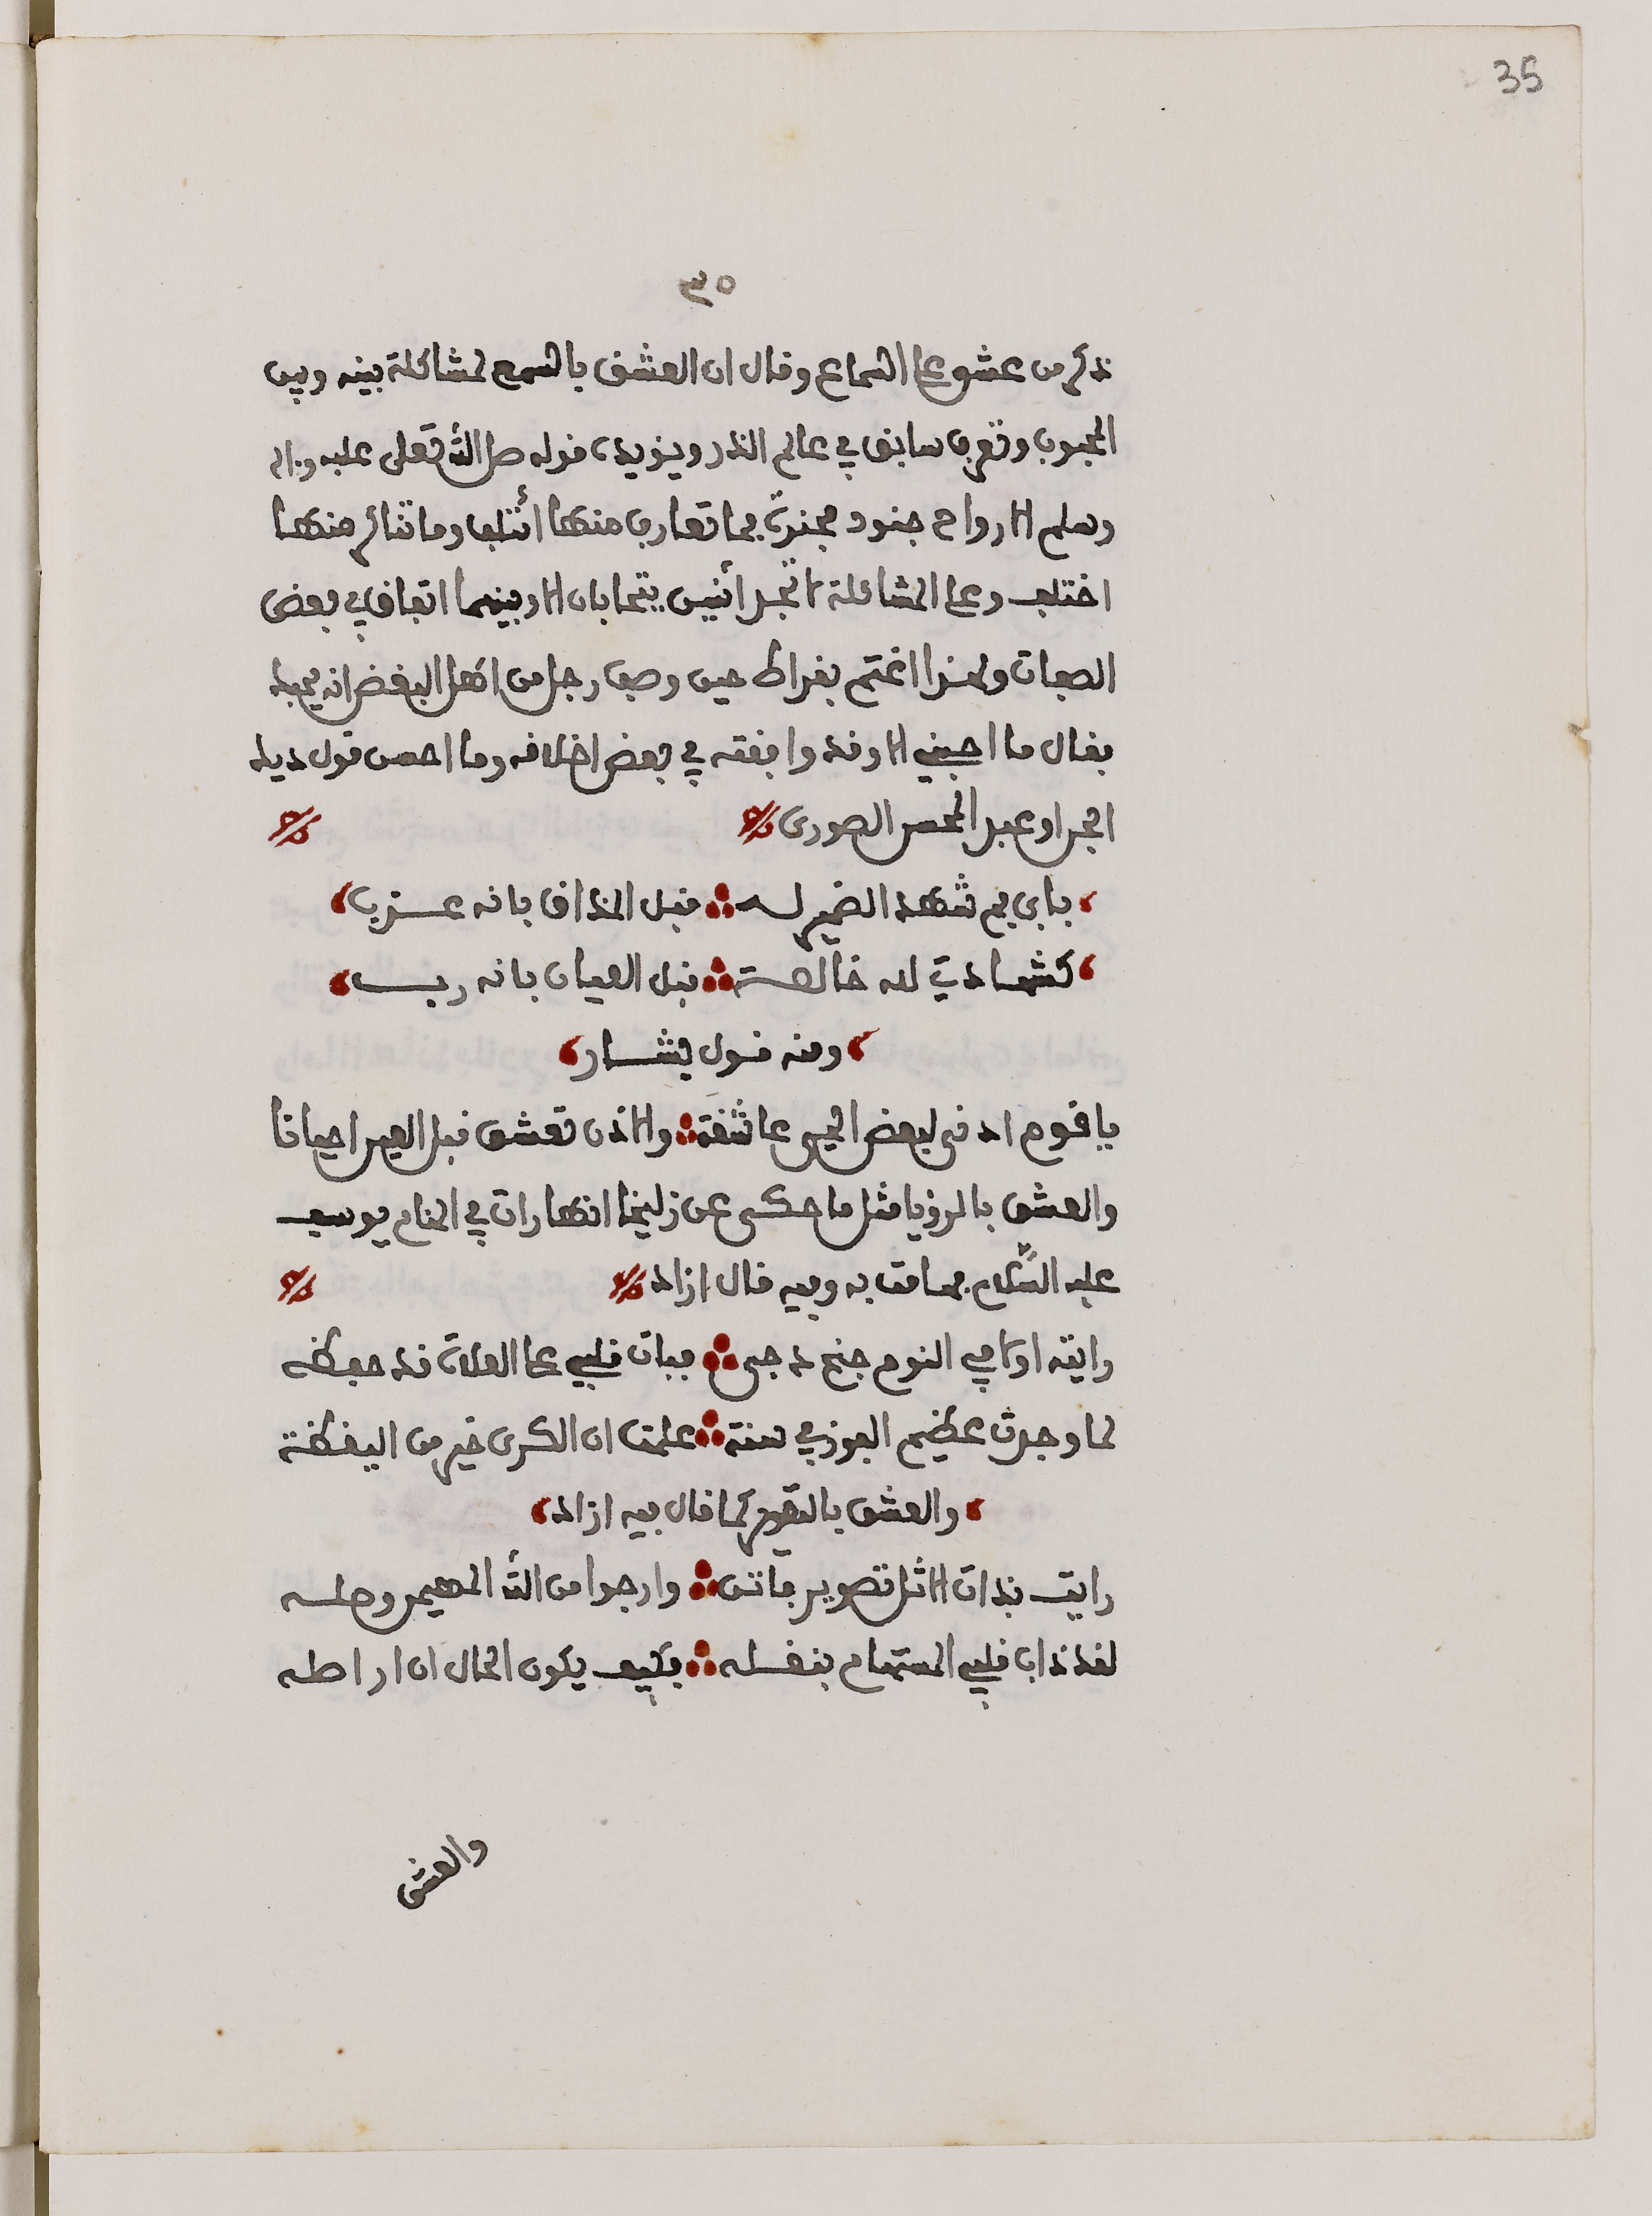 35
٣٥
نذكر من عشق على السماع وقال ان العشق بالسمع لمشاكلة بينه وبين
المحبوب وتعرف سابق في عالم الذر ويؤيده قوله صلى الله تعلى عليه وءاله
وسلم الارواح جنود مجندة فما تعارف منها أئتلف وما تناكر منها
اختلف وعلى المشاكلة لا تجد اثنين يتحابان الا وبينهما اتفاق في بعض
الصفات ولهذا اغتم بقراط حين وصف رجل من اهل البغض انه يحبه
فقال ما احبني الا وقد وافقته في بعض اخلاقه وما احسن قول ديك
الجن او عبد المحسن الصوري
بابي فم شهد الضمير له قبل المذاق بانه عذب
كشهادتي لله خالصة قبل العيان بانه رب
ومنه قول بشار
يا قوم اذني لبعض الحي عاشقة والاذن تعشق قبل العين احيانا
والعشق بالرؤيا مثل ما حكى عن زليخا انها رات في المنام يوسف
عليه السّلام فهامت به وفيه قال ازاد
رايته اولا في النوم جنح دجى فبات قلبي على العلات قد حفظه
لما وجدت عظيم الفوز في سنة علمت ان الكرى خير من اليقظة
والعشق بالتصوير كما قال فيه ازاد
رايت بذات الاثل تصوير فاتن وارجوا من الله المهيمن وصله
لقد ذاب قلبي المستهام بنقله فكيف يكون الحال ان ار اصله
والعشق